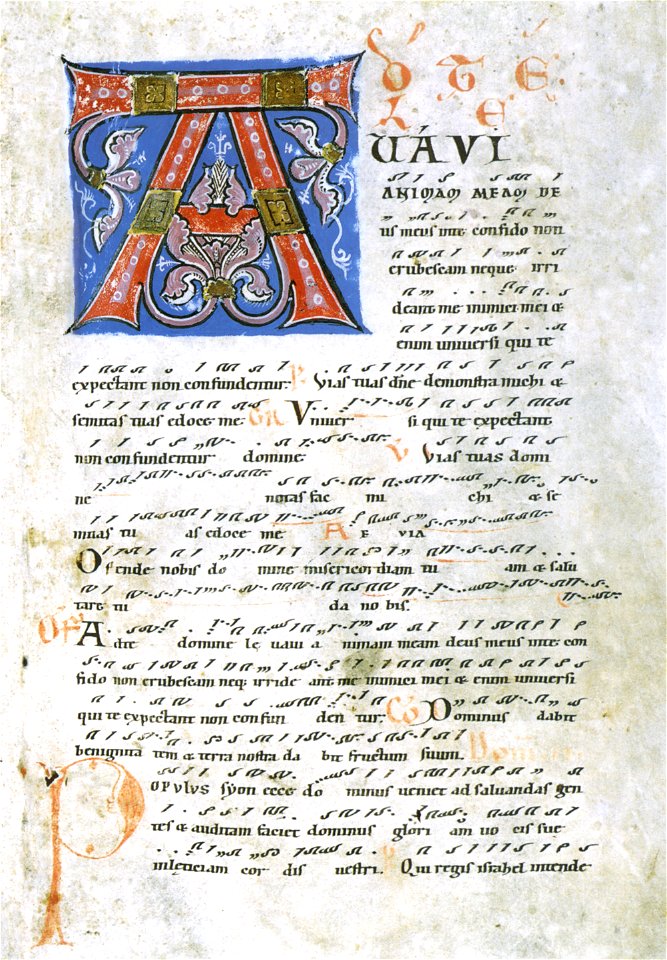 AD TE
LE
VÁVI
ANIMAM MEAM DE
us meus inte confido non
erubescam neque irri
deant me inimici mei &
enim universi qui te
expectant non confundentur. Vias tuas dñe demonstra michi &
semitas tuas edoce me. GR Vniver si qui te expectant
non confundentur domine. V Vias tuas domi
ne notas fac mi chi & se
mitas tu as edoce me A E VIA
Ostende nobis do mine misericordiam tu am & salu
tare tu da nobis.
OF Ad te domine le vavi a nimam meam deus meus inte con
fido non erubescam neq; irride ant me inimici mei & enim universi
qui te expectant non confun den tur. CO Dominus dabit
benignita tem & terra nostra da bit fructum suum.
POPULUS syon ecce do minus veniet ad salvandas gen
tes & auditam faciet dominus glori am vo cis sue
inleticiam cor dis vestri. Qui regis israhel intende